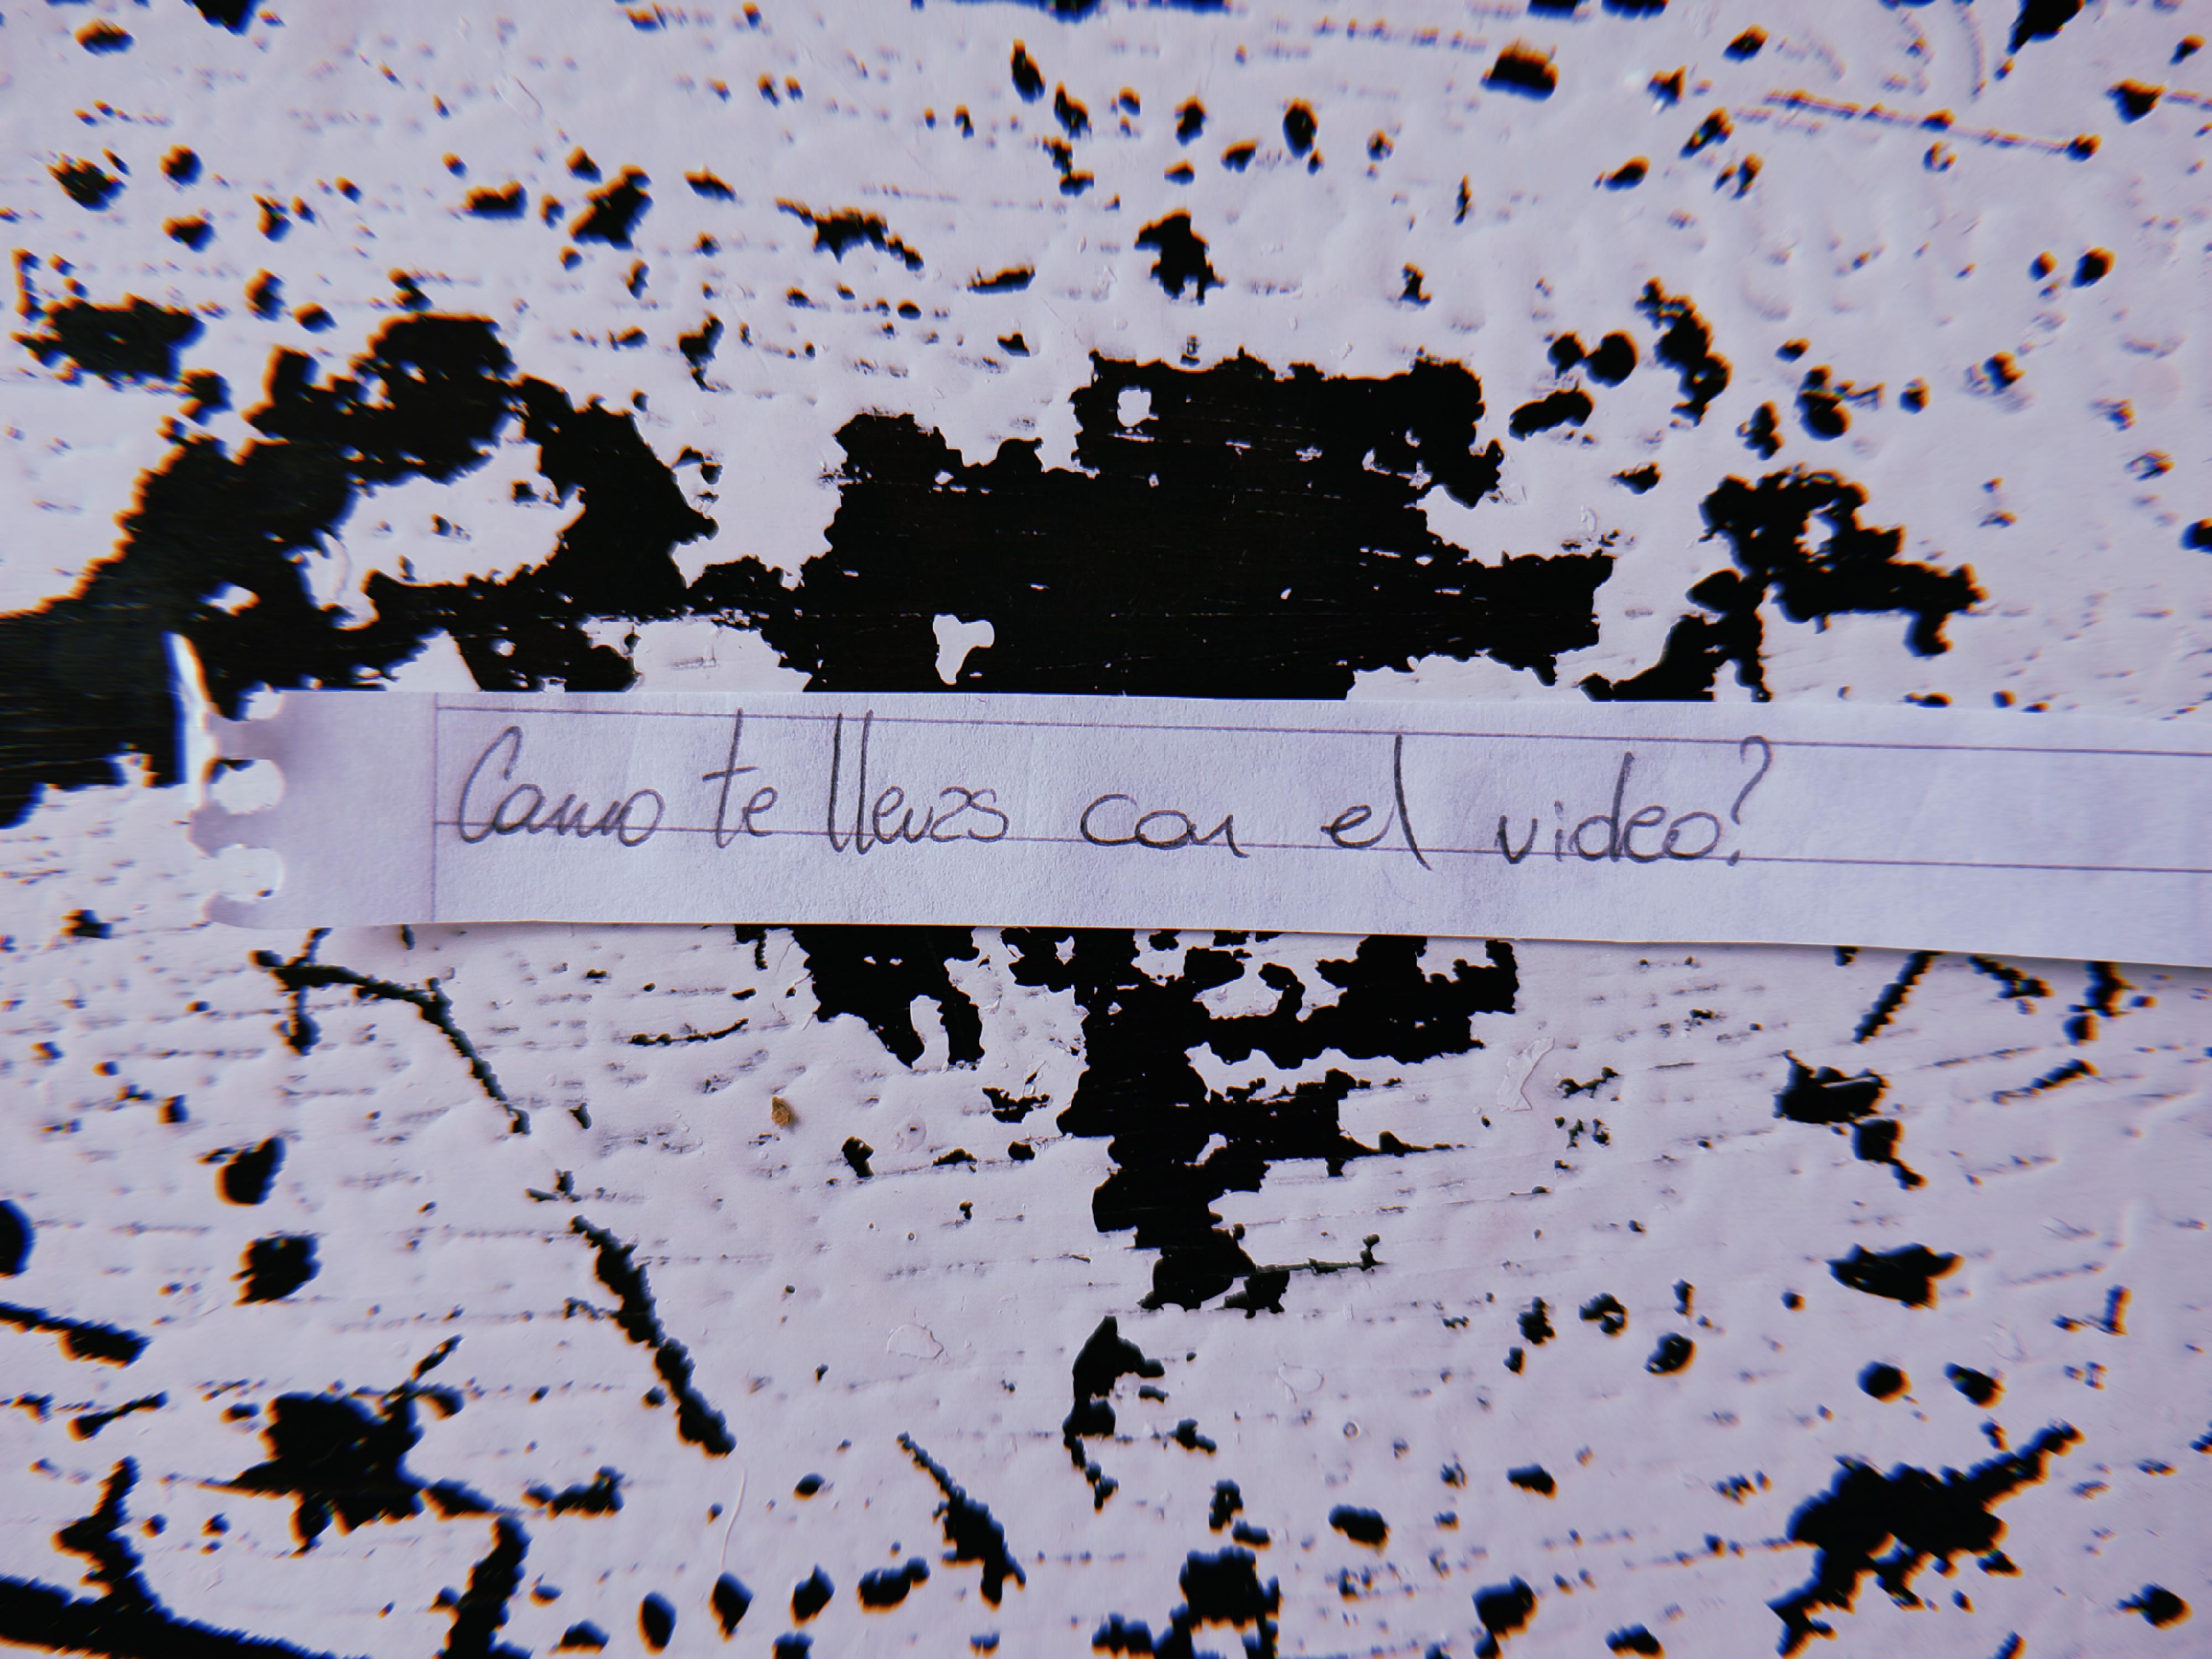 Como te llevas con el video?